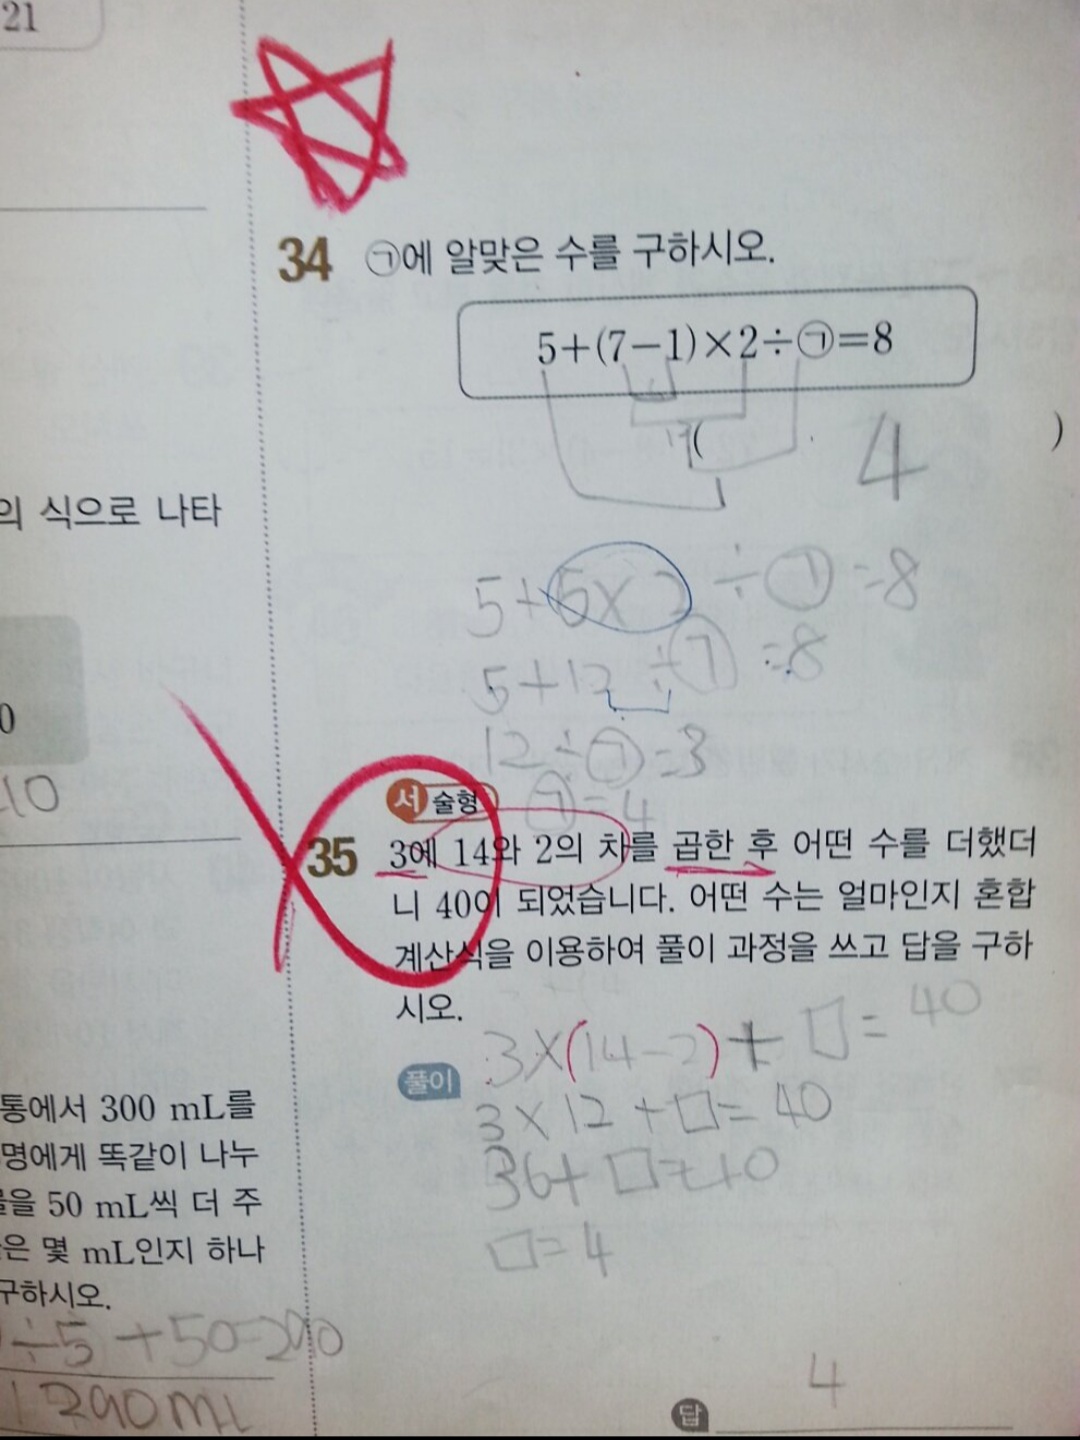 21
의 식으로 나타
0
10
통에서 300 mL를
명에게 똑같이 나누
을 50 mL씩 더 주
은 몇 mL인지 하나
구하시오.
÷5 + 50=290
290ml
34 ㉠에 알맞은 수를 구하시오.
5+(7-1)×2÷㉠=8
( 4 )
5+6×2 ÷㉠=8
5+12÷㉠=8
12÷㉠=3
㉠=4
서술형
35 3에 14와 2의 차를 곱한 후 어떤 수를 더했더
니 40이 되었습니다. 어떤 수는 얼마인지 혼합
계산식을 이용하여 풀이 과정을 쓰고 답을 구하
시오.
풀이 3×(14-2)+□=40
3×12+□=40
36+□=40
□=4
답 4